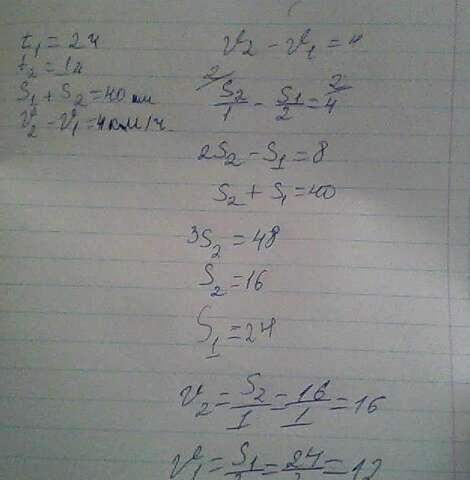 t₁ = 2ч
t₂ = 1ч
S₁ + S₂ = 40 км
v₂ - v₁ = 4 км/ч
v₂ - v₁ = 4
2/ S₂/1 - S₁/2 = 2/ 4
2S₂ - S₁ = 8
S₂ + S₁ = 40
3S₂ = 48
S₂ = 16
S₁ = 24
v₂ = S₂/1 = 16/1 = 16
v₁ = S₁/2 = 24/2 = 12